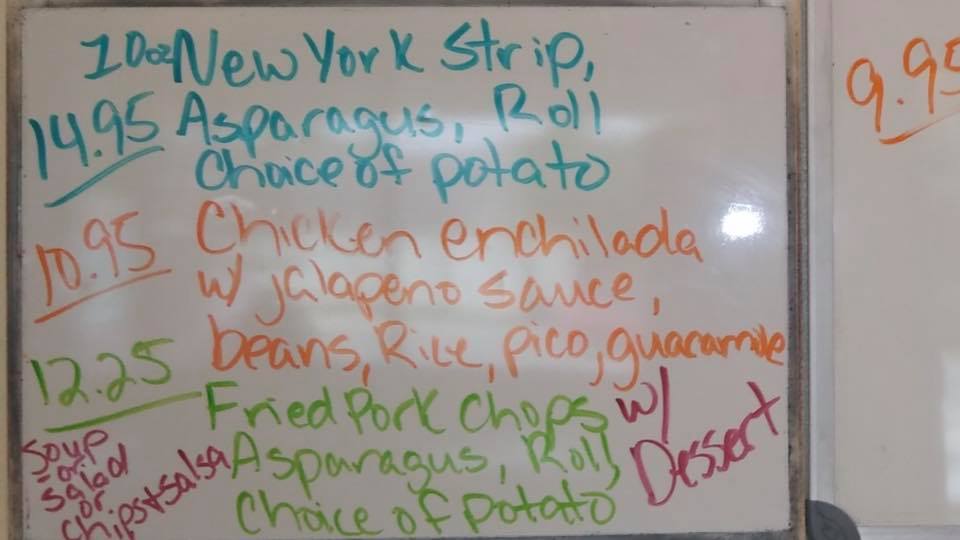 10oz New York Strip,
14.95 Asparagus, Roll
Choice of potato
10.95 Chicken enchilada
w/ jalapeno sauce,
beans, Rice, pico, guacamole
12.25 Fried Pork Chops
Asparagus, Roll
Choice of potato
w/
Dessert
Soup
or
Salad
or
chips + salsa
9.95